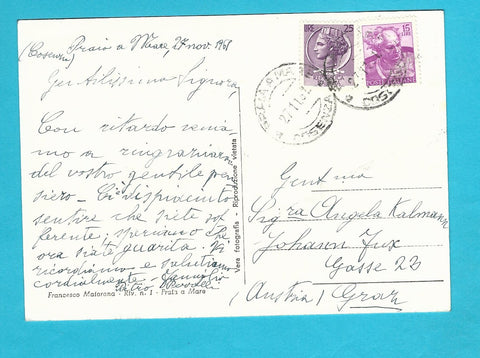 (Cosenza) Praia a Mare, 27 nov. 1961
Gentilissima Signora,
Con ritardo venia
mo a ringraziarvi
del vostro gentile pen
siero - Ci dispiacente
sentire che siete sof
ferente; speriamo che
ora siate guarita. Vi
ricordiamo e salutiamo
cordialmente - Famiglia
Francesco Maiorana - Riv. n. 1 - Praia a Mare
Vera fotografia - Riproduzione vietata
25
15
LIRE
PRAIA A MARE
COSENZA
Gent.ma
Sig.ra Angela Kalmann
Johann Fux
Gasse 23
(Austria) Graz